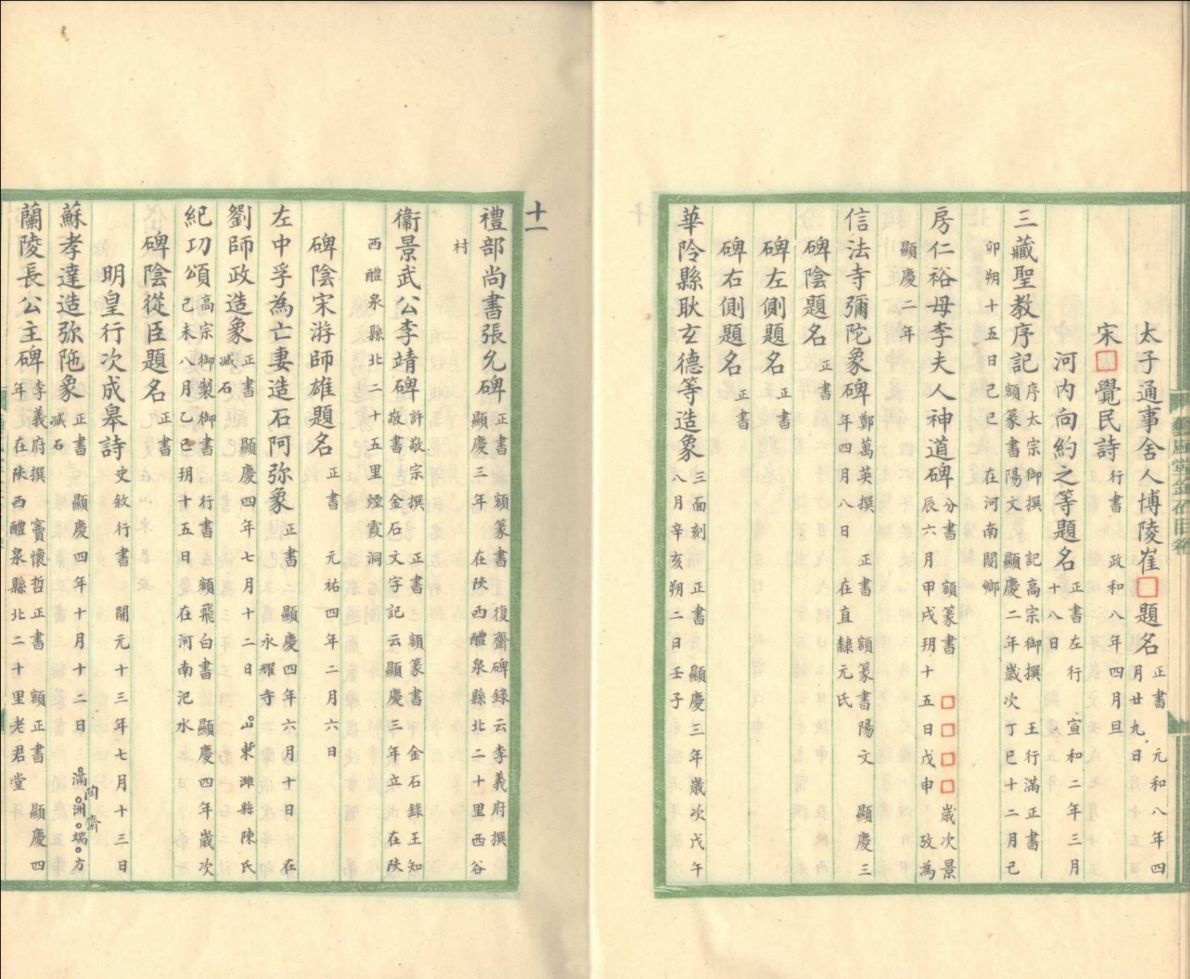 太子通事舍人博陵崔□題名 正書 元和八年四月廿九日
宋□覺民詩 行書 政和八年四月旦
河內向約之等題名 正書左行 宣和二年三月十八日
三藏聖教序記 序太宗御撰 記高宗御撰 王行滿正書 額篆書陽文 顯慶二年歲次丁巳十二月己
卯朔十五日己巳 在河南閿鄉
房仁裕母李夫人神道碑 分書 額篆書 □□□□歲次景辰六月甲戌玥十五日戊申 攷為
顯慶二年
信法寺彌陀象碑 鄭萬英撰 正書 額篆書陽文 顯慶三年四月八日 在直隸元氏
碑陰題名 正書
碑左側題名 正書
碑右側題名 正書
華阾縣耿玄德等造象 三面刻 正書 顯慶三年歲次戊午八月辛亥朔二日壬子
十一
禮部尚書張允碑 正書 額篆書 復齋碑錄云李義府撰 顯慶三年 在陝西醴泉縣北二十里西谷
村
衞景武公李靖碑 許敬宗撰 正書 額篆書 金石錄王知敬書 金石文字記云顯慶三年立 在陝
西醴泉縣北二十五里煙霞洞
碑陰宋游師雄題名 正書 元祐四年二月六日
左中孚為亡妻造石阿弥象 正書 顯慶四年六月十日 在永耀寺
劉師政造象 正書 顯慶四年七月二日 山東濰縣陳氏減石
紀功頌 高宗御製御書 行書 額飛白書 顯慶四年歲次己未八月乙巳玥十五日 在河南汜水
碑陰從臣題名 正書
明皇行次成皋詩 史敘行書 開元十三年七月十三日
蘇孝達造弥陁象 正書 顯慶四年十月十二日 滿洲端方減石
陶齋
蘭陵長公主碑 李義府撰 竇懷哲正書 額正書 顯慶四年 在陝西醴泉縣北二十里老君堂